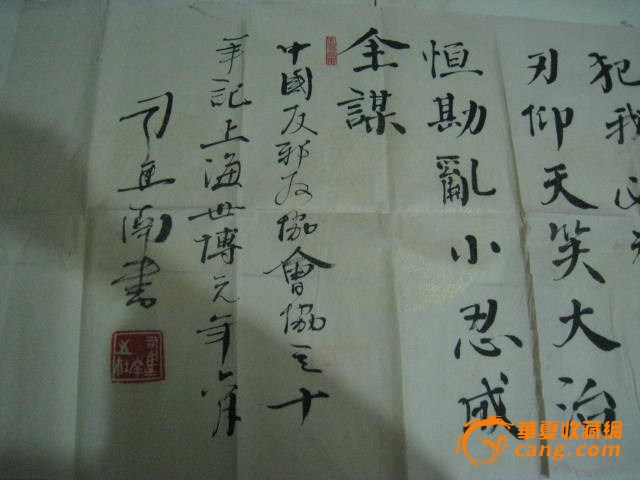 犯我
刃仰天笑大治
恒勘亂小忍成
全謀
中國反邪教協會協立十
年記上海世博元年六月
司馬南書
華夏收藏網
cang.com